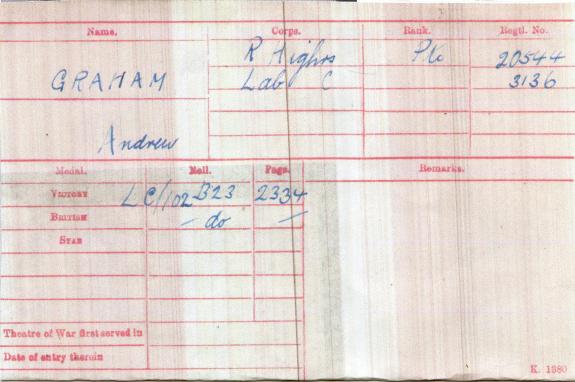 Name. Corps. Rank. Regtl. No.
R Highrs Pte 20544
GRAHAM Lab C 3136
Andrew
Medal. Roll. Page. Remarks.
VICTORY LC/102 B23 2334
BRITISH - do -
STAR
Theatre of War first served in
Date of entry therein
K. 1380